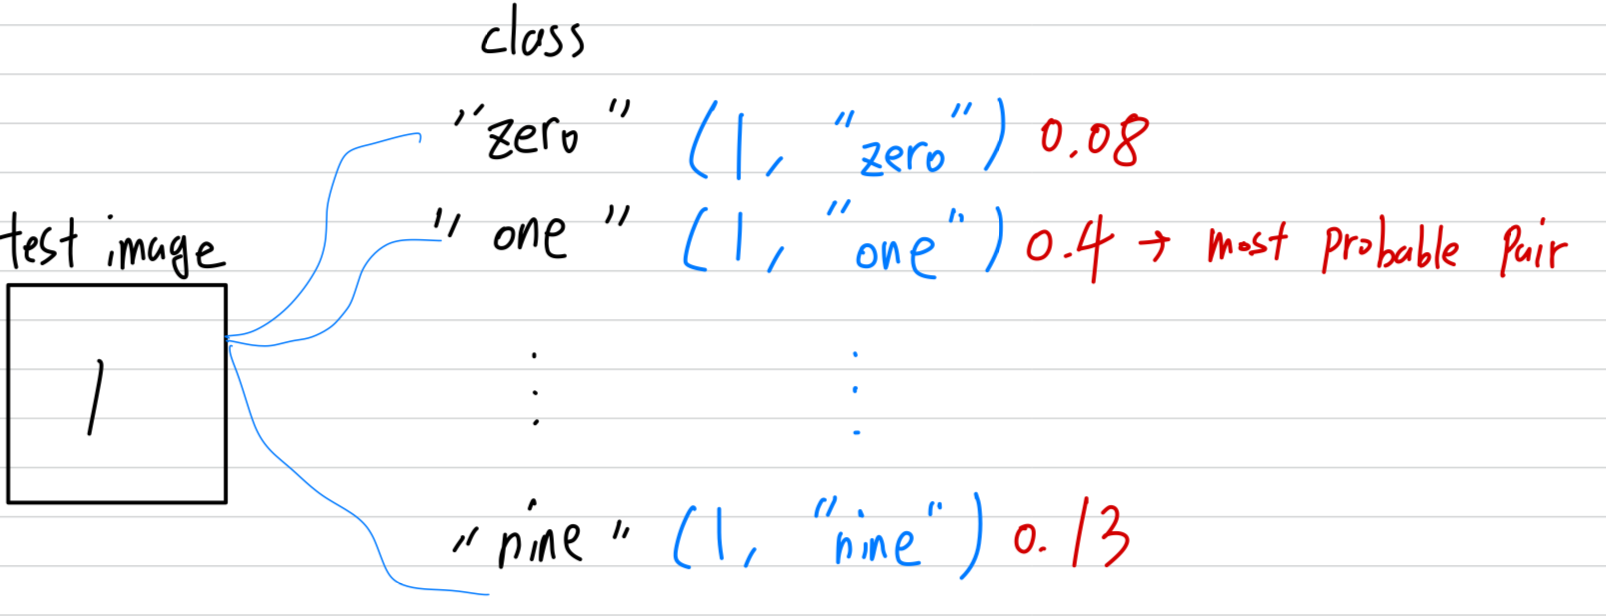 class
"zero" (1, "zero") 0.08
"one" (1, "one") 0.4 → most probable pair
test image
1
"nine" (1, "nine") 0.13